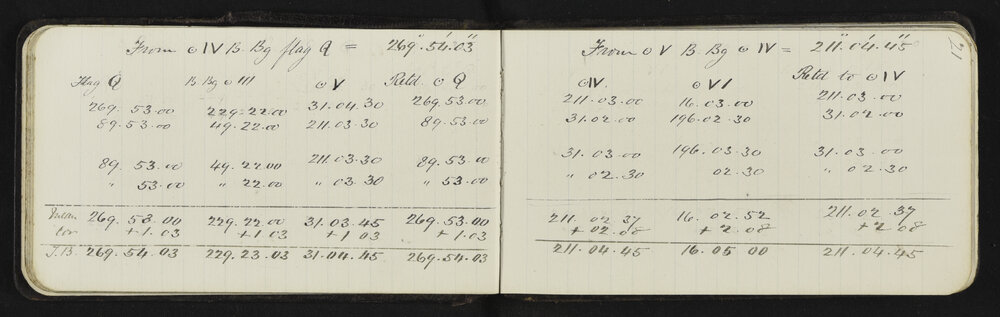 From ⊙ IV B. Bg flag Q = 269°.54'.03"
Flag Q B. Bg ⊙ III ⊙ V Retd. ⊙ Q
269. 53.00 229.22.00 31.04.30 269.53.00
89.53.00 49.22.00 211.03.30 89.53.00
89. 53.00 49.22.00 211.03.30 89.53.00
" 53.00 " 22.00 " 03.30 " 53.00
Mean 269. 53.00 229.22.00 31.03.45 269.53.00
Cor +1.03 +1.03 +1.03 +1.03
T.B. 269.54.03 229.23.03 31.04.45 269.54.03
21
From ⊙ V B. Bg ⊙ IV = 211°.04'.45"
⊙ IV. ⊙ VI Retd to ⊙ IV
211.03.00 16.03.00 211.03.00
31.02.00 196.02.30 31.02.00
31.03.00 196.03.30 31.03.00
" 02.30 02.30 " 02.30
211.02.37 16.02.52 211.02.37
+02.08 +2.08 +2.08
211.04.45 16.05.00 211.04.45